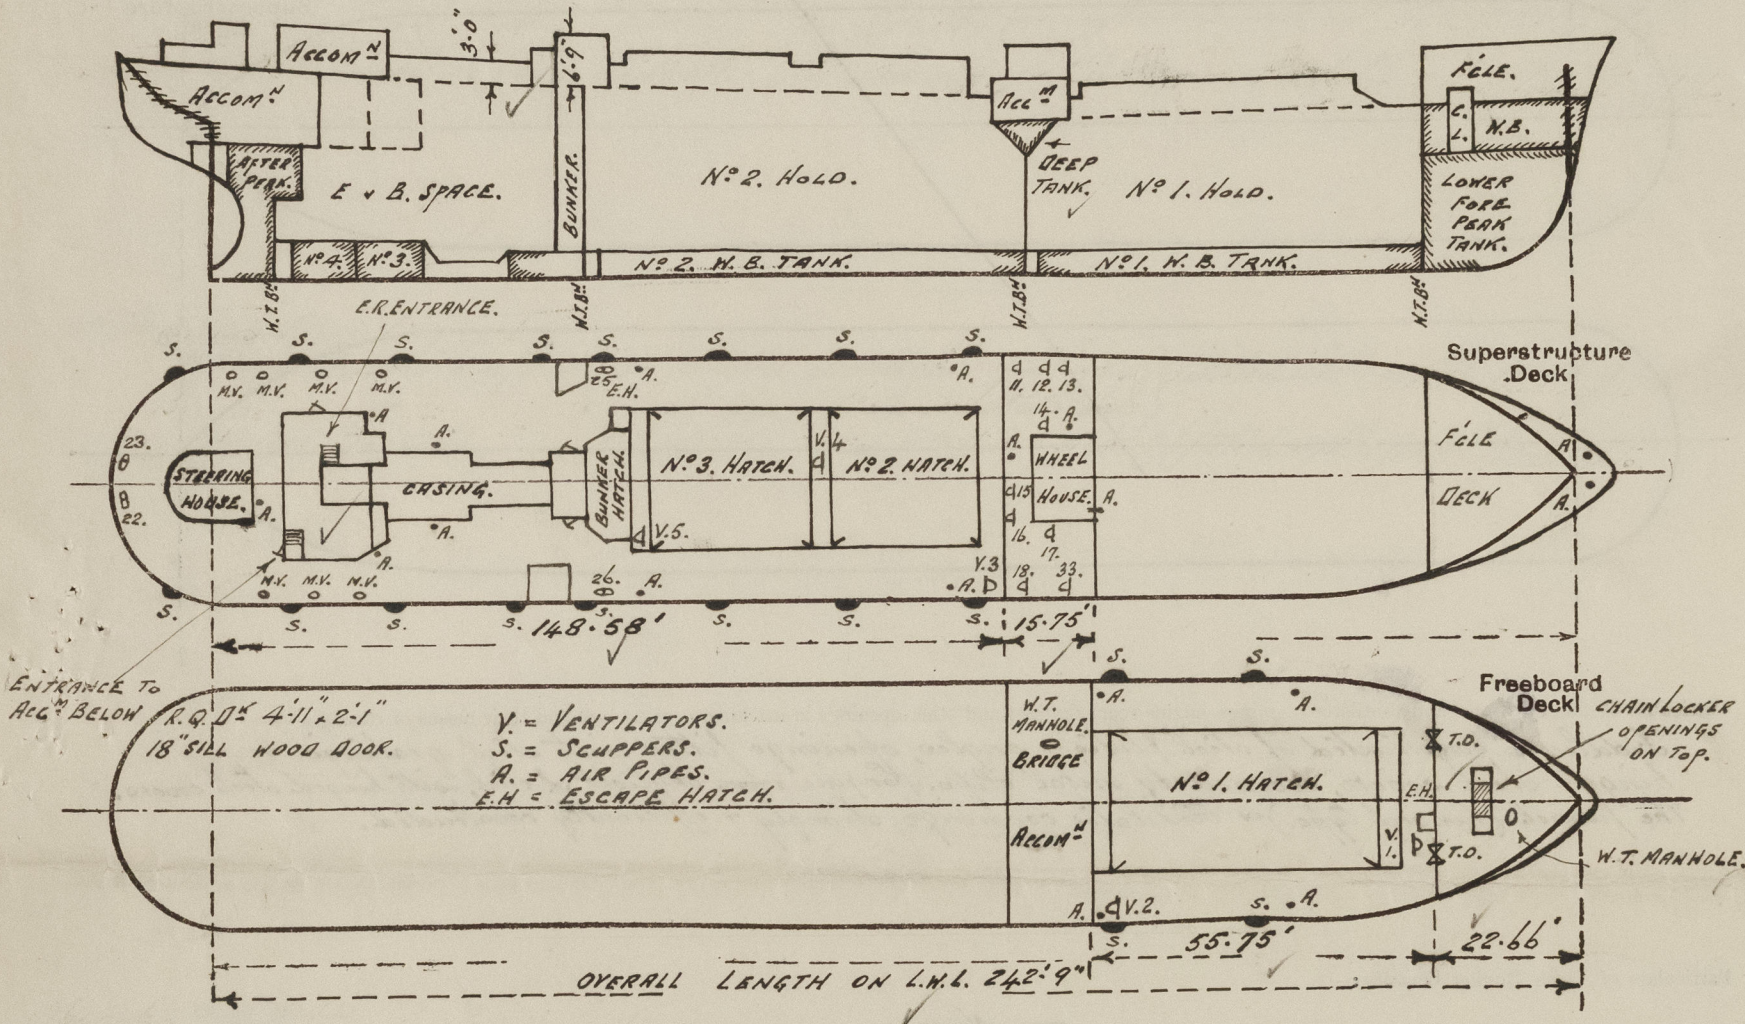 ACCOMᴺ
3'.0"
6'.9"
ACCOMᴺ
ACCᴹ
F'CLE.
C.
L.
W.B.
AFTER
PEAK.
E & B. SPACE.
BUNKER.
Nº 2. HOLD.
DEEP
TANK.
Nº 1. HOLD.
LOWER
FORE
PEAK
TANK.
Nº 4.
Nº 3.
Nº 2. W.B. TANK.
Nº 1. W.B. TANK.
W.T.Bᴴ
W.T.Bᴴ
W.T.Bᴴ
W.T.Bᴴ
E.R. ENTRANCE.
S. S. S. S. S. S. S. S.
Superstructure
Deck
M.V. M.V. M.V. M.V.
25. E.H. A. A.
11. 12. 13.
14. A.
A
A.
23.
STEERING
HOUSE.
A.
22.
CASING.
A.
A.
BUNKER
HATCH.
Nº 3. HATCH.
V. 4
Nº 2. HATCH.
V.5.
A.
WHEEL
HOUSE.
A.
15
16.
17.
F'CLE
DECK
A
A.
M.V. M.V. M.V.
26. A.
A. V.3
18. 33.
S. S. S. S. S. S. S. S.
148.58'
15.75'
ENTRANCE TO
ACCᴹ BELOW
R.Q.Dᴷ 4'-11" x 2'-1"
18" SILL WOOD DOOR.
V. = VENTILATORS.
S. = SCUPPERS.
A. = AIR PIPES.
E.H = ESCAPE HATCH.
W.T.
MANHOLE.
BRIDGE
ACCOMᴺ
S. S.
A. A.
Freeboard
Deck
CHAIN LOCKER
OPENINGS
ON TOP.
T.O.
Nº 1. HATCH.
E.H.
V.
1.
T.O.
W.T. MANHOLE.
A. V.2.
S. A.
S.
55.75'
22.66'
OVERALL LENGTH ON L.W.L. 242'.9"